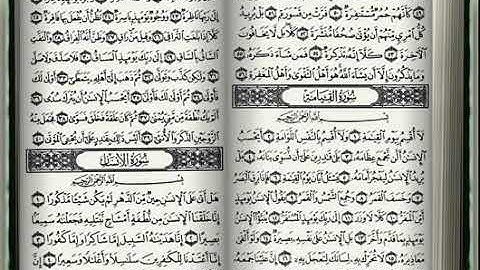 كَأَنَّهُمْ حُمُرٌ مُّسْتَنفِرَةٌ ٥٠ فَرَّتْ مِن قَسْوَرَةٍ ٥١ بَلْ يُرِيدُ
كُلُّ ٱمْرِئٍ مِّنْهُمْ أَن يُؤْتَىٰ صُحُفًا مُّنَشَّرَةً ٥٢ كَلَّا بَل لَّا يَخَافُونَ
ٱلْءَاخِرَةَ ٥٣ كَلَّا إِنَّهُۥ تَذْكِرَةٌ ٥٤ فَمَن شَآءَ ذَكَرَهُۥ ٥٥
وَمَا يَذْكُرُونَ إِلَّا أَن يَشَآءَ ٱللَّهُ هُوَ أَهْلُ ٱلتَّقْوَىٰ وَأَهْلُ ٱلْمَغْفِرَةِ ٥٦
سُورَةُ القِيَامَةِ
بِسْمِ ٱللَّهِ ٱلرَّحْمَٰنِ ٱلرَّحِيمِ
لَآ أُقْسِمُ بِيَوْمِ ٱلْقِيَٰمَةِ ١ وَلَآ أُقْسِمُ بِٱلنَّفْسِ ٱللَّوَّامَةِ ٢ أَيَحْسَبُ
ٱلْإِنسَٰنُ أَلَّن نَّجْمَعَ عِظَامَهُۥ ٣ بَلَىٰ قَٰدِرِينَ عَلَىٰٓ أَن نُّسَوِّىَ بَنَانَهُۥ ٤ بَلْ يُرِيدُ
ٱلْإِنسَٰنُ لِيَفْجُرَ أَمَامَهُۥ ٥ يَسْـَٔلُ أَيَّانَ يَوْمُ ٱلْقِيَٰمَةِ ٦ فَإِذَا بَرِقَ ٱلْبَصَرُ ٧
وَخَسَفَ ٱلْقَمَرُ ٨ وَجُمِعَ ٱلشَّمْسُ وَٱلْقَمَرُ ٩ يَقُولُ ٱلْإِنسَٰنُ يَوْمَئِذٍ
أَيْنَ ٱلْمَفَرُّ ١٠ كَلَّا لَا وَزَرَ ١١ إِلَىٰ رَبِّكَ يَوْمَئِذٍ ٱلْمُسْتَقَرُّ ١٢ يُنَبَّؤُا۟ ٱلْإِنسَٰنُ
يَوْمَئِذٍۭ بِمَا قَدَّمَ وَأَخَّرَ ١٣ بَلِ ٱلْإِنسَٰنُ عَلَىٰ نَفْسِهِۦ بَصِيرَةٌ ١٤ وَلَوْ أَلْقَىٰ
مَعَاذِيرَهُۥ ١٥ لَا تُحَرِّكْ بِهِۦ لِسَانَكَ لِتَعْجَلَ بِهِۦٓ ١٦ إِنَّ عَلَيْنَا جَمْعَهُۥ
إِلَىٰ رَبِّهَا نَاظِرَةٌ ٢٣ وَوُجُوهٌ يَوْمَئِذٍۭ بَاسِرَةٌ ٢٤
ٱلسَّاقُ بِٱلسَّاقِ ٢٩ إِلَىٰ رَبِّكَ يَوْمَئِذٍ ٱلْمَسَاقُ ٣٠ فَلَا صَدَّقَ وَلَا صَلَّىٰ ٣١
وَلَٰكِن كَذَّبَ وَتَوَلَّىٰ ٣٢ ثُمَّ ذَهَبَ إِلَىٰٓ أَهْلِهِۦ يَتَمَطَّىٰٓ ٣٣ أَوْلَىٰ لَكَ
فَأَوْلَىٰ ٣٤ ثُمَّ أَوْلَىٰ لَكَ فَأَوْلَىٰٓ ٣٥ أَيَحْسَبُ ٱلْإِنسَٰنُ أَن يُتْرَكَ سُدًى ٣٦
أَلَمْ يَكُ نُطْفَةً مِّن مَّنِىٍّ يُمْنَىٰ ٣٧ ثُمَّ كَانَ عَلَقَةً فَخَلَقَ فَسَوَّىٰ ٣٨ فَجَعَلَ مِنْهُ
ٱلزَّوْجَيْنِ ٱلذَّكَرَ وَٱلْأُنثَىٰٓ ٣٩ أَلَيْسَ ذَٰلِكَ بِقَٰدِرٍ عَلَىٰٓ أَن يُحْـِۧىَ ٱلْمَوْتَىٰ ٤٠
سُورَةُ الإِنسَانِ
بِسْمِ ٱللَّهِ ٱلرَّحْمَٰنِ ٱلرَّحِيمِ
هَلْ أَتَىٰ عَلَى ٱلْإِنسَٰنِ حِينٌ مِّنَ ٱلدَّهْرِ لَمْ يَكُن شَيْـًٔا مَّذْكُورًا ١
إِنَّا خَلَقْنَا ٱلْإِنسَٰنَ مِن نُّطْفَةٍ أَمْشَاجٍ نَّبْتَلِيهِ فَجَعَلْنَٰهُ سَمِيعًۢا
بَصِيرًا ٢ إِنَّا هَدَيْنَٰهُ ٱلسَّبِيلَ إِمَّا شَاكِرًا وَإِمَّا كَفُورًا ٣
إِنَّآ أَعْتَدْنَا لِلْكَٰفِرِينَ سَلَٰسِلَا۟ وَأَغْلَٰلًا وَسَعِيرًا ٤